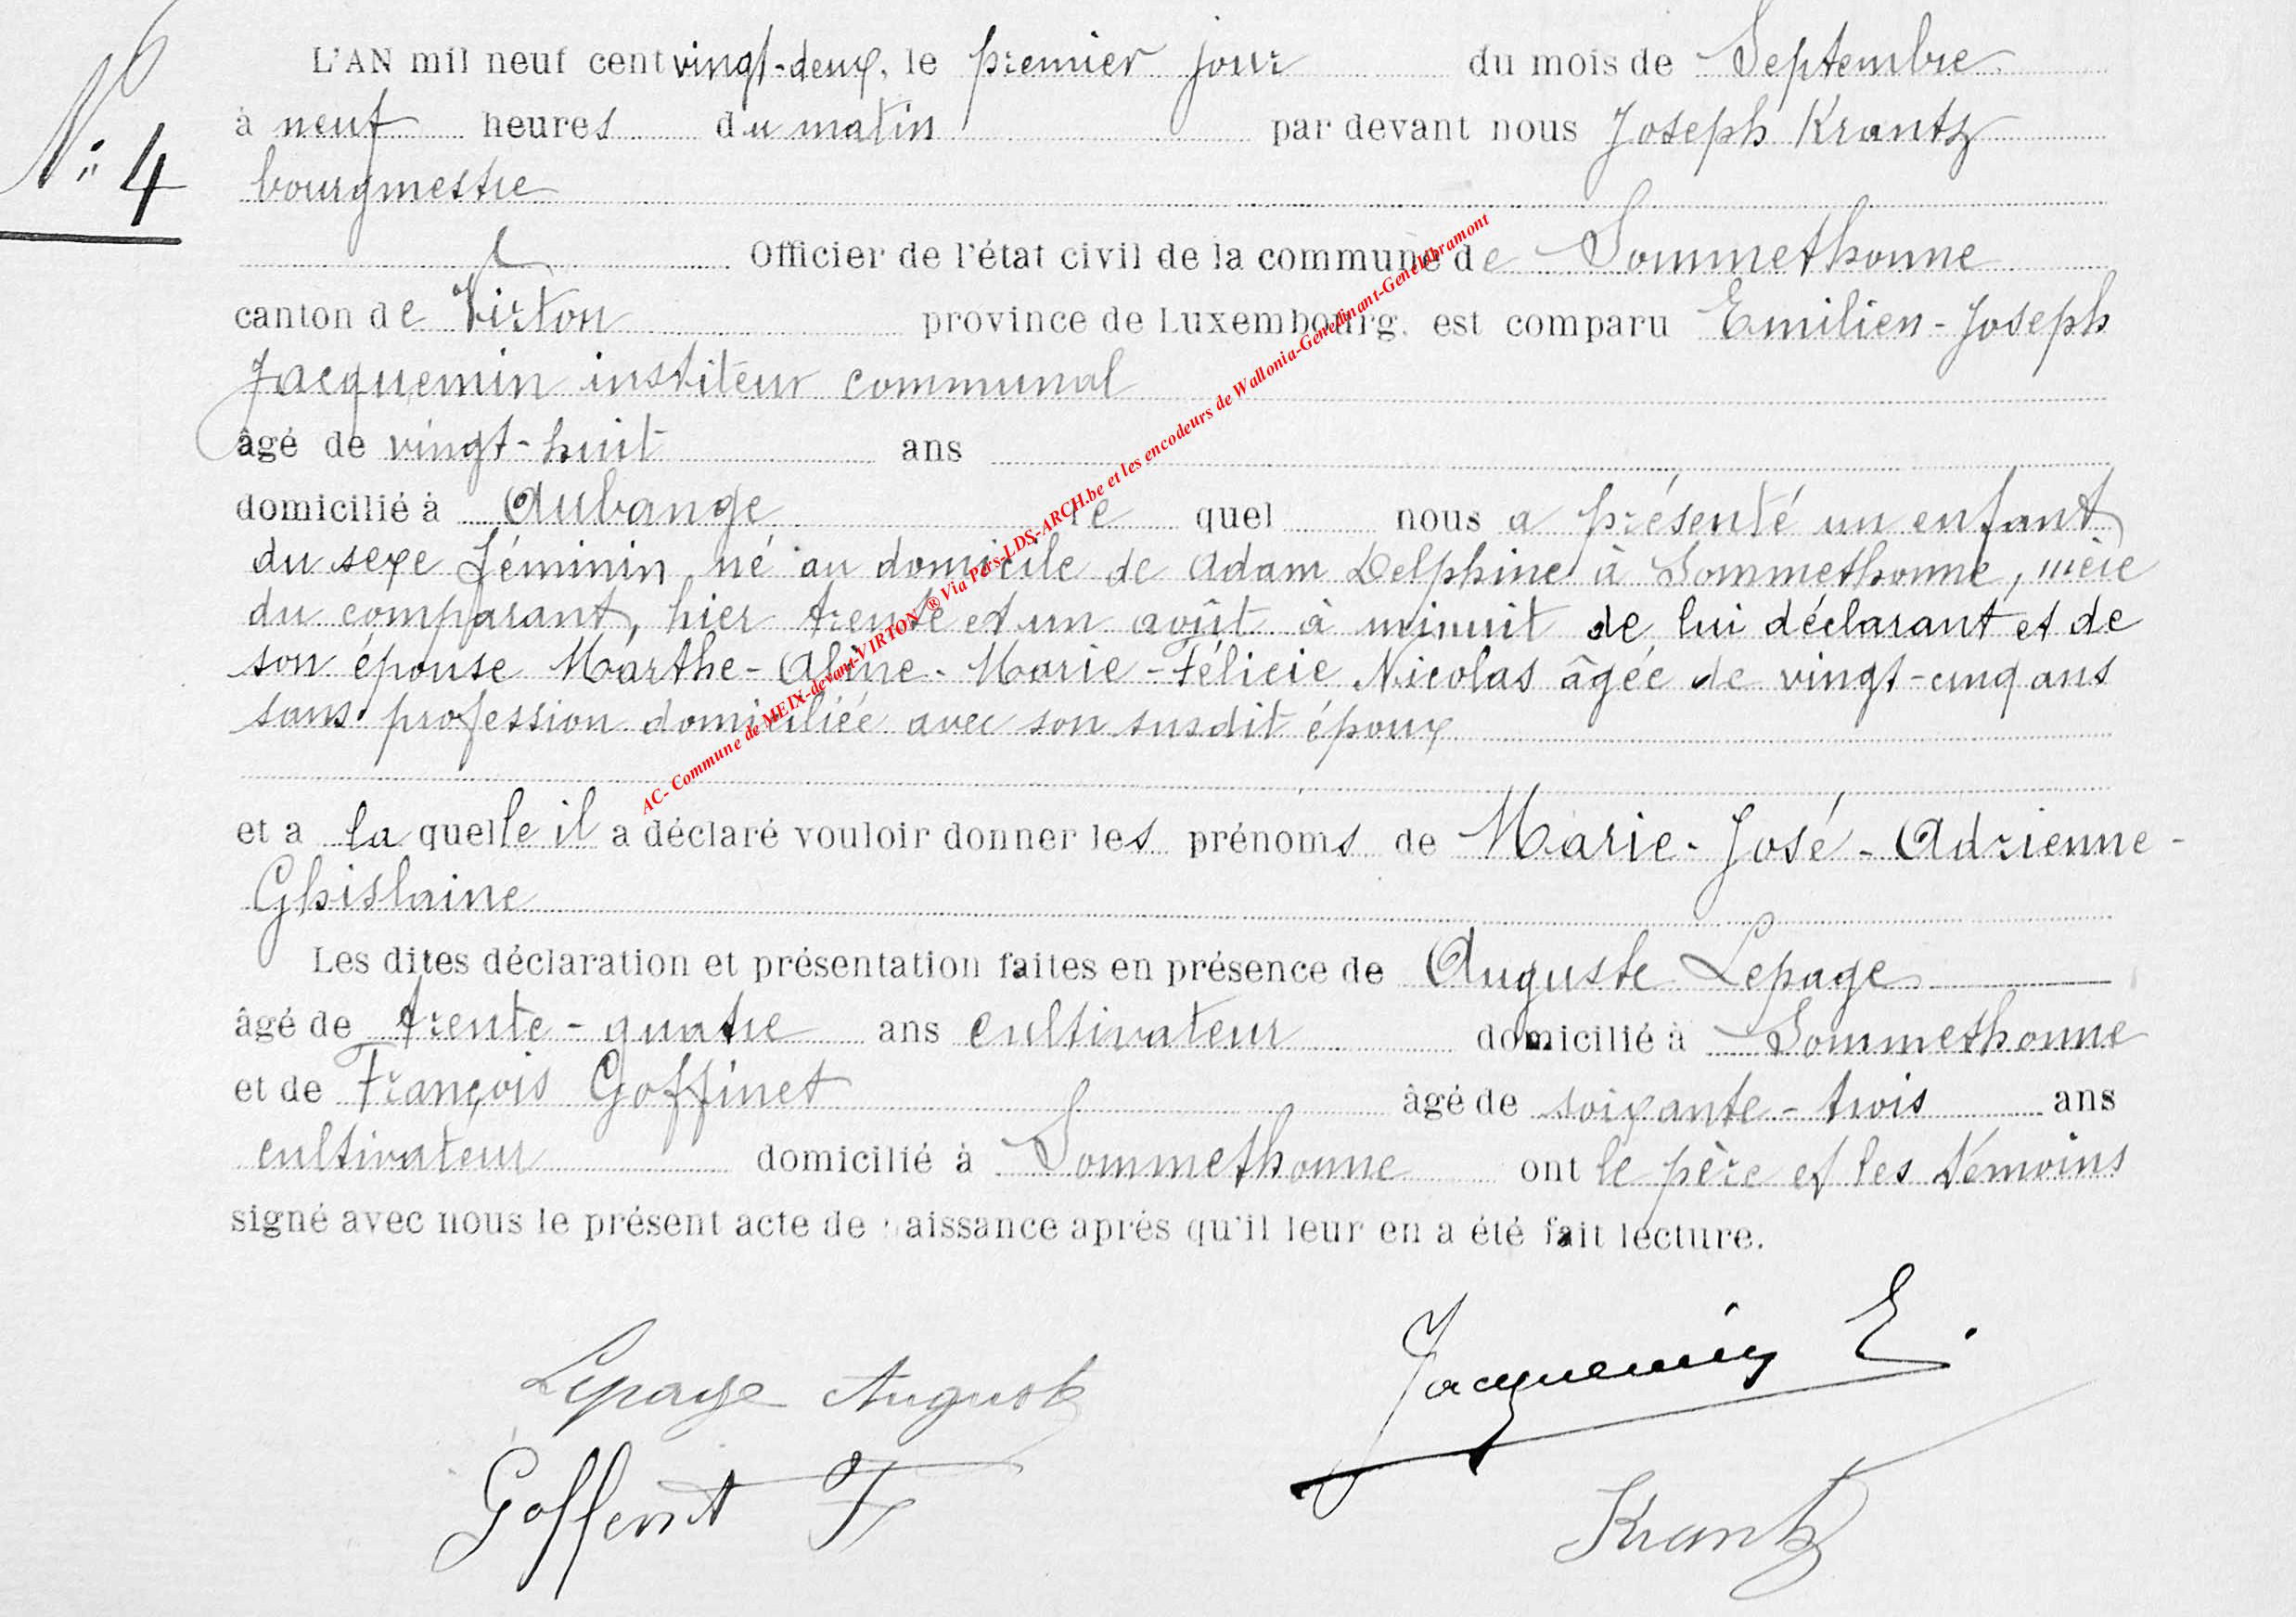 L'AN mil neuf cent vingt-deux, le premier jour du mois de Septembre
à neuf heures du matin par devant nous Joseph Krantz
N° 4
bourgmestre
Officier de l'état civil de la commune de Sommethonne
canton de Virton province de Luxembourg, est comparu Emilien-Joseph
Jacquemin institeur communal
âgé de vingt-huit ans
domicilié à Aubange le quel nous a présenté un enfant
du sexe féminin né au domicile de Adam Delphine à Sommethonne, mère
du comparant, hier trente et un août à minuit de lui déclarant et de
son épouse Marthe-Aline-Marie-Félicie Nicolas âgée de vingt-cinq ans
sans profession domiciliée avec son susdit époux
et a la quelle il a déclaré vouloir donner les prénoms de Marie-José-Adrienne-
Ghislaine
Les dites déclaration et présentation faites en présence de Auguste Lepage
âgé de trente-quatre ans cultivateur domicilié à Sommethonne
et de François Goffinet âgé de soixante-trois ans
cultivateur domicilié à Sommethonne ont le père et les témoins
signé avec nous le présent acte de naissance après qu'il leur en a été fait lecture.
Jacquemin E.
Lepage Auguste
Goffinet F
Krantz
AC- Commune de MEIX-devant-VIRTON ® Via Pers-LDS-ARCH.be et les encodeurs de Wallonia-Genedinant-Genelibramont